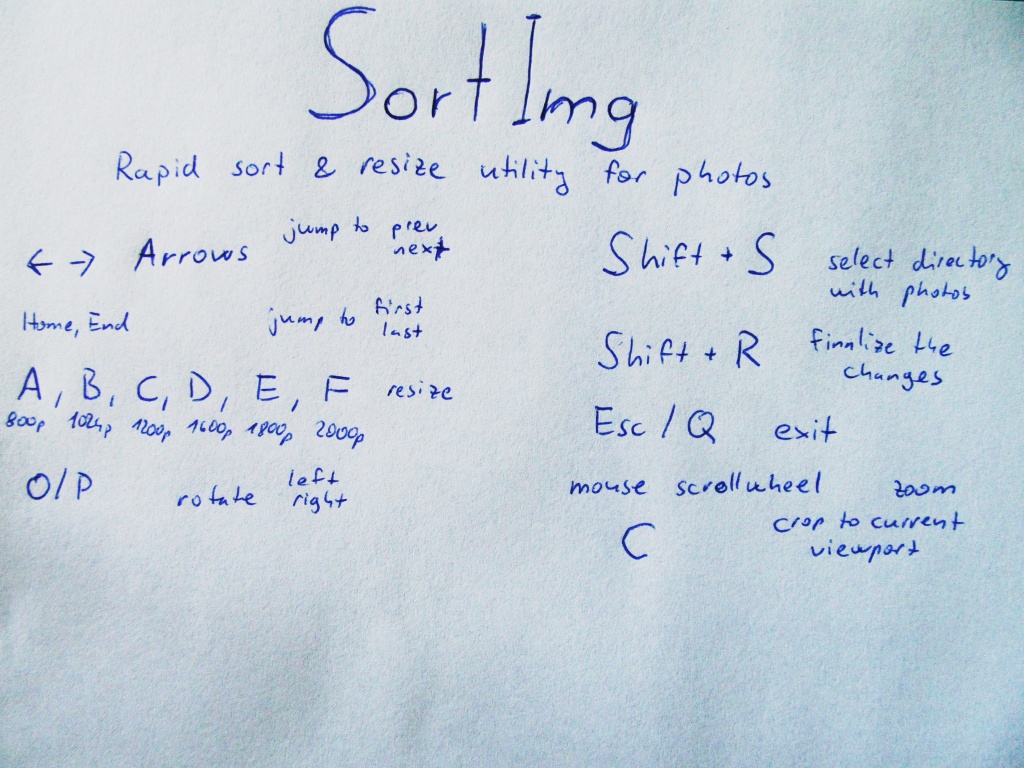 Sort Img
Rapid sort & resize utility for photos
← → Arrows jump to prev
next
Home, End jump to first
last
A, B, C, D, E, F resize
800p 1024p 1200p 1600p 1800p 2000p
O/P rotate left
right
Shift + S select directory
with photos
Shift + R finalize the
changes
Esc / Q exit
mouse scrollwheel zoom
C crop to current
viewport